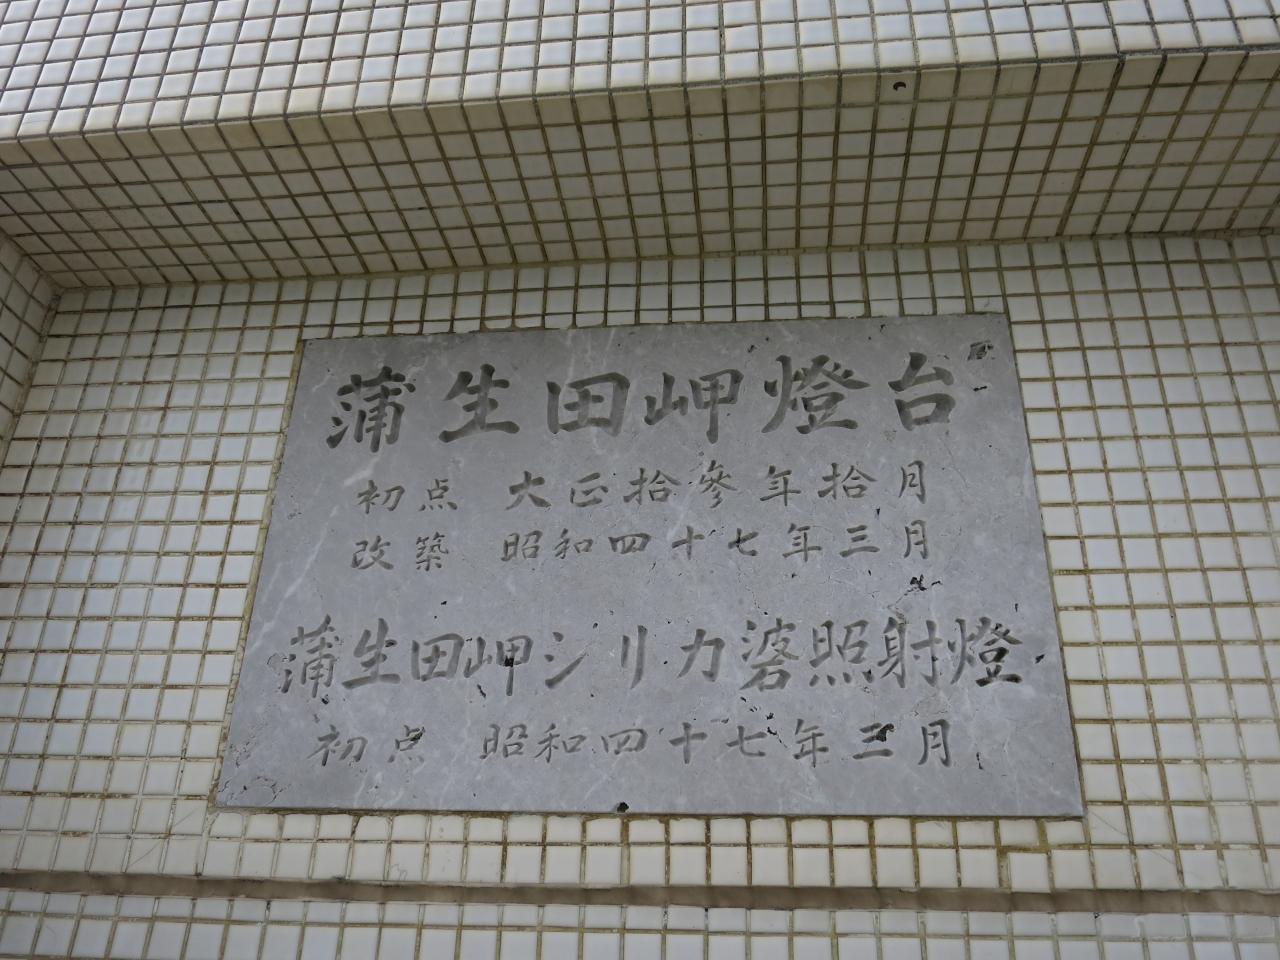 蒲生田岬燈台
初点 大正拾參年拾月
改築 昭和四十七年三月
蒲生田岬シリカ碆照射燈
初点 昭和四十七年三月